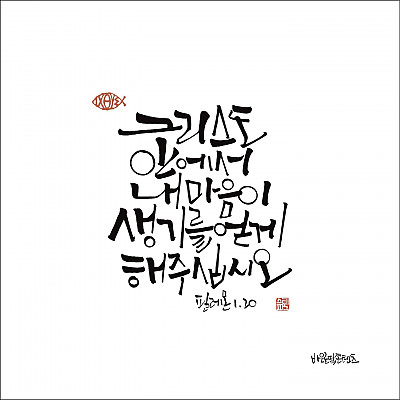 그리스도
안에서
내 마음이
생기를 얻게
해주십시오
필레몬 1.20